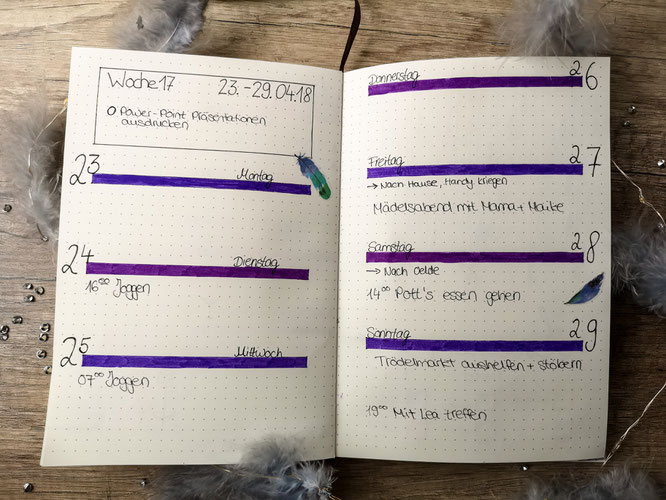 Woche 17 23.-29.04.18
O Power-Point Präsentationen
ausdrucken
23 Montag
24 Dienstag
16⁰⁰ Joggen
25 Mittwoch
07⁰⁰ Joggen
Donnerstag 26
Freitag 27
→ Nach Hause, Handy kriegen
Mädelsabend mit Mama + Maike
Samstag 28
→ Nach Oelde
14⁰⁰ Pott's essen gehen
Sonntag 29
Trödelmarkt aushelfen + stöbern
19⁰⁰ Mit Lea treffen